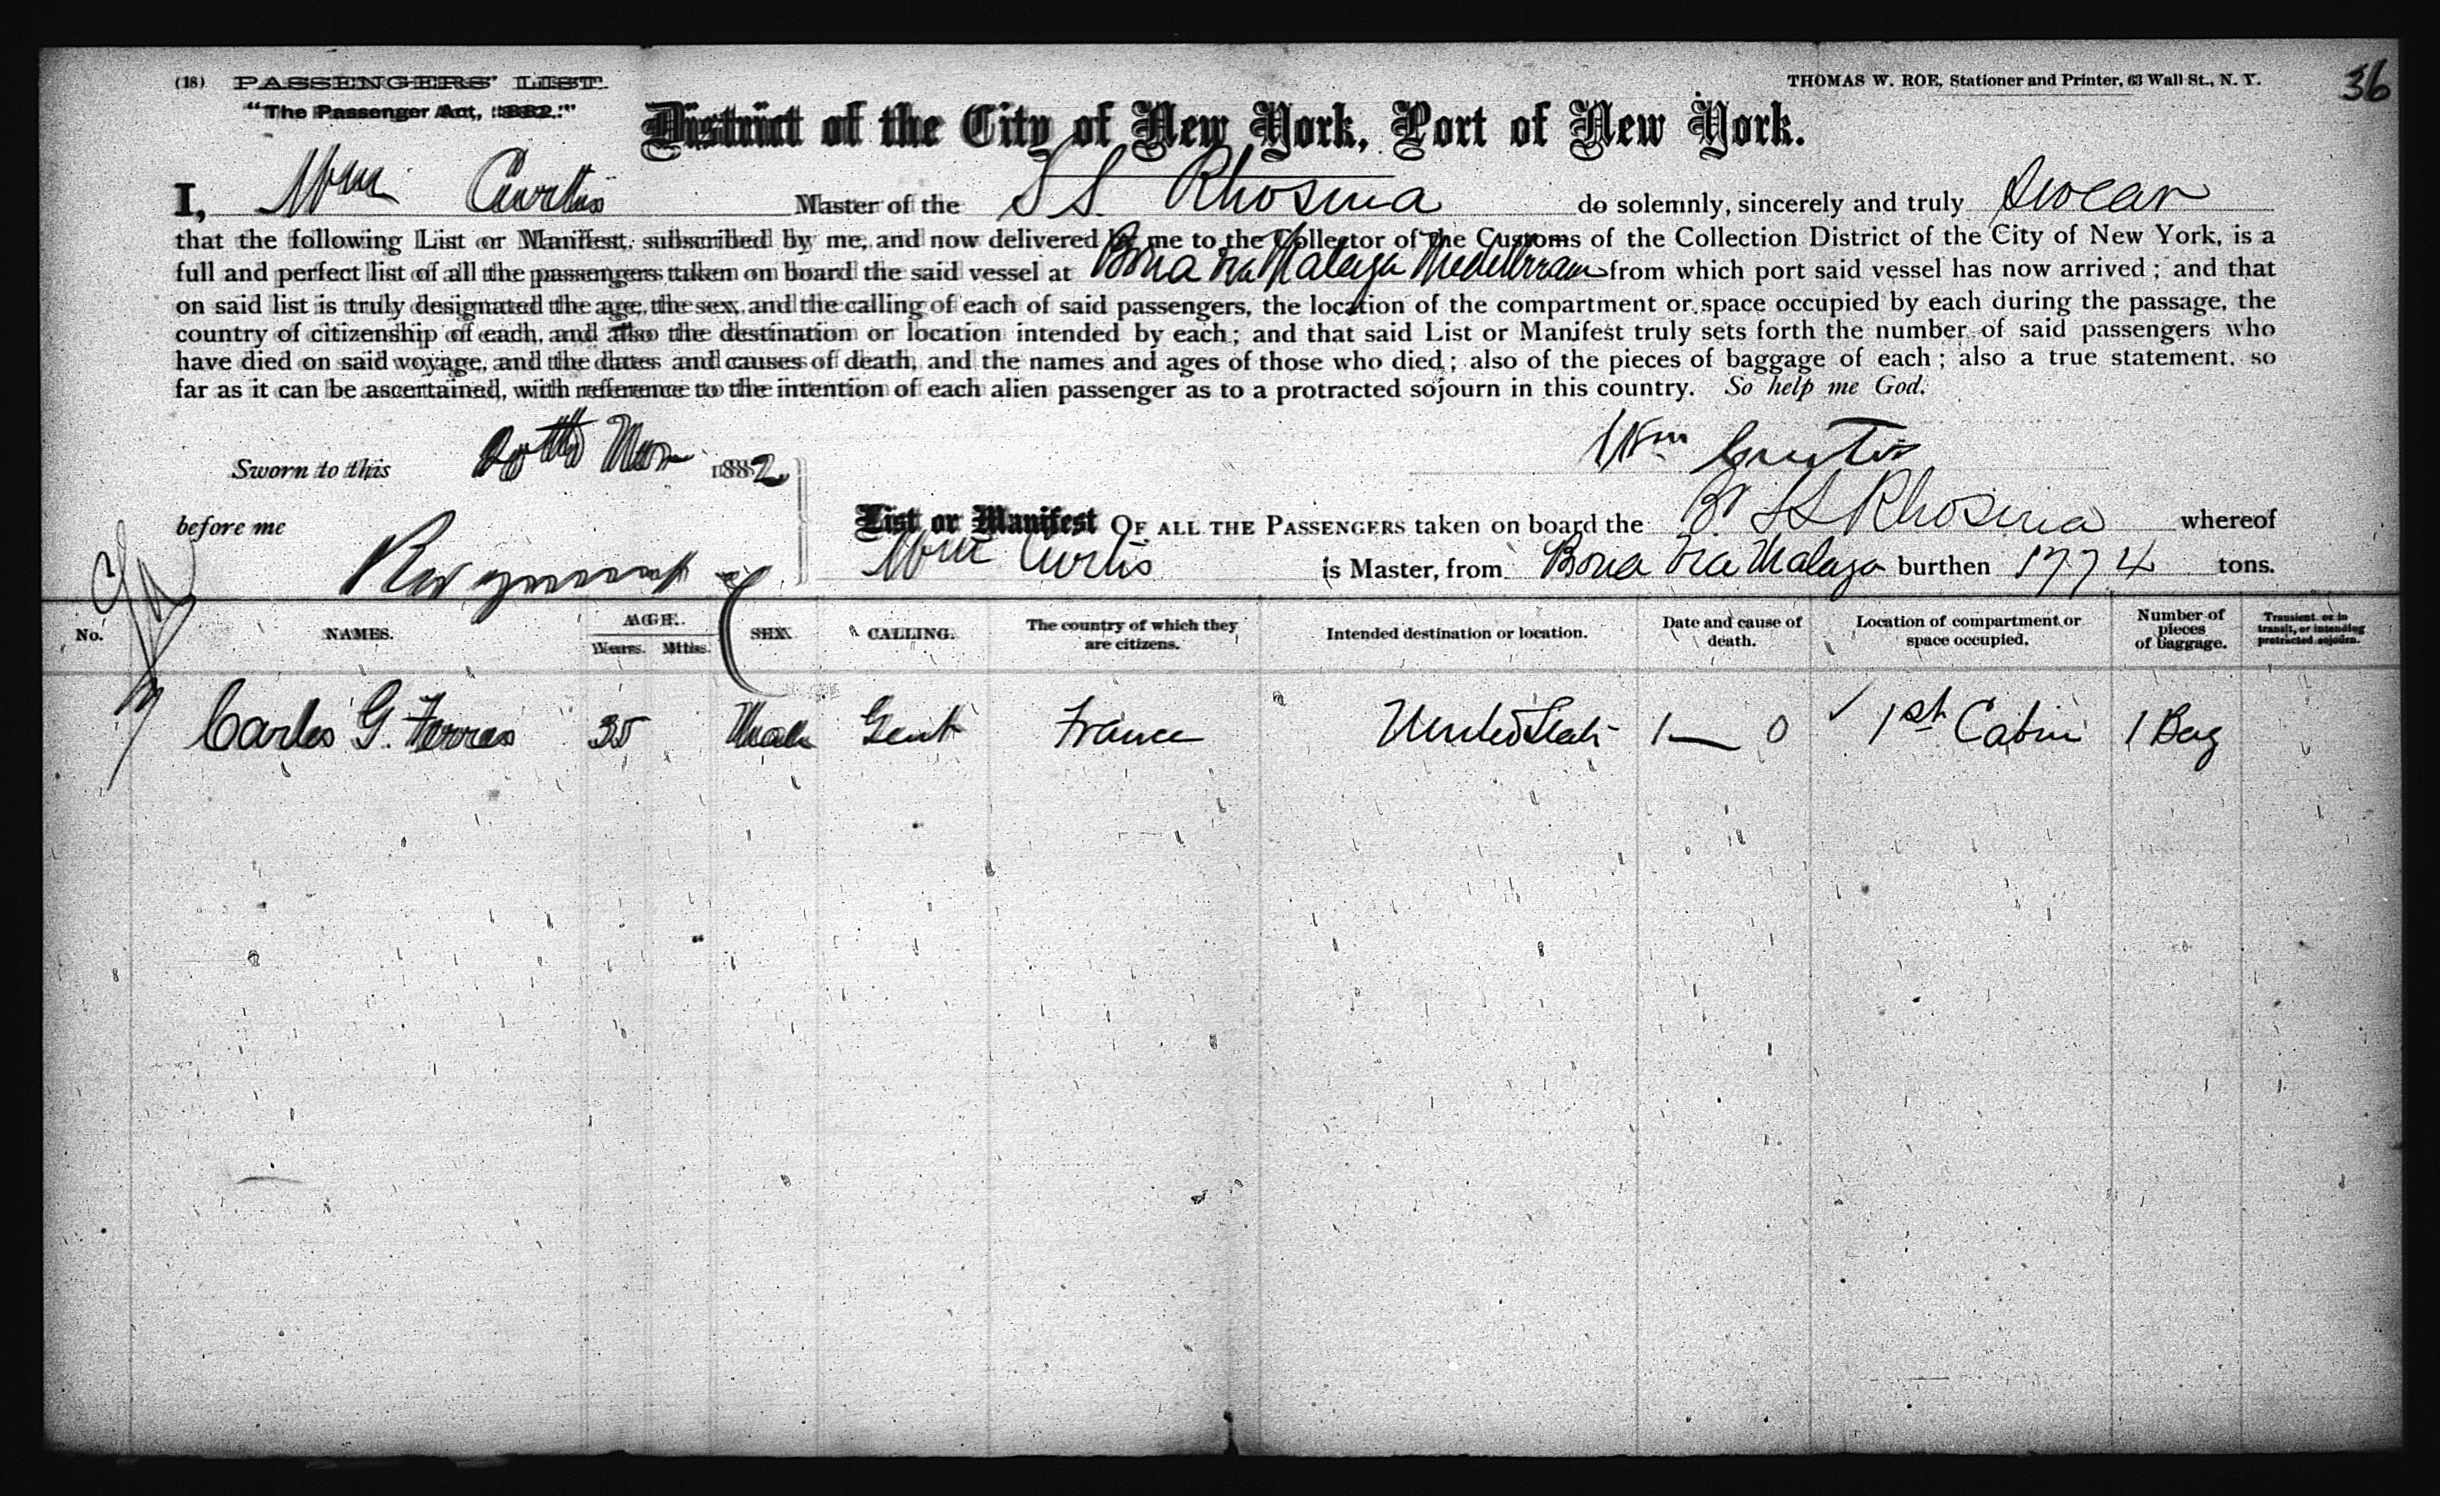 (18) PASSENGERS' LIST.
THOMAS W. ROE, Stationer and Printer, 63 Wall St., N. Y.
36
"The Passenger Act, 1882."
District of the City of New York, Port of New York.
I, Wm Curtis Master of the S S. Rhosina do solemnly, sincerely and truly Swear
that the following List or Manifest, subscribed by me, and now delivered by me to the Collector of the Customs of the Collection District of the City of New York, is a
full and perfect list of all the passengers taken on board the said vessel at Bona via Malaga from which port said vessel has now arrived; and that
on said list is truly designated the age, the sex, and the calling of each of said passengers, the location of the compartment or space occupied by each during the passage, the
country of citizenship of each, and also the destination or location intended by each; and that said List or Manifest truly sets forth the number of said passengers who
have died on said voyage, and the dates and causes of death, and the names and ages of those who died; also of the pieces of baggage of each; also a true statement, so
far as it can be ascertained, with reference to the intention of each alien passenger as to a protracted sojourn in this country. So help me God.
Sworn to this 20th Nov 1882
Wm Curtis
before me
List or Manifest OF ALL THE PASSENGERS taken on board the Br SS Rhosina whereof
Wm Curtis is Master, from Bona Via Malaga burthen 1774 tons.
No. NAMES. AGE. Years. Mths. SEX. CALLING. The country of which they are citizens. Intended destination or location. Date and cause of death. Location of compartment or space occupied. Number of pieces of baggage. Transient or in transit, or intending protracted sojourn.
Carlos G. Ferres 35 Male Gent France United States 1 — 0 ✓ 1st Cabin 1 Bag